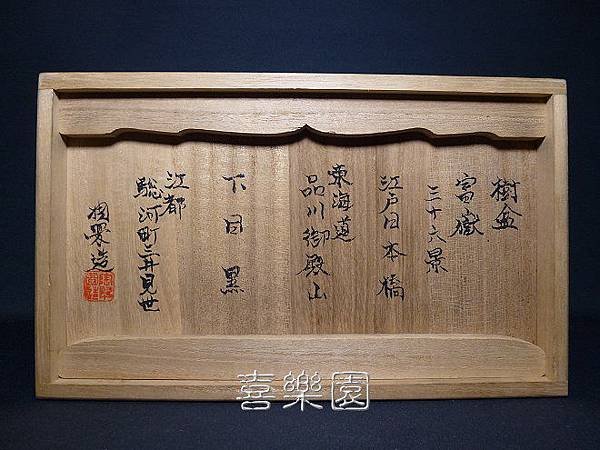 樹盆
富嶽
三十六景
江戸日本橋
東海道
品川御殿山
下目黒
江都
駿河町三井見世
造
喜樂園